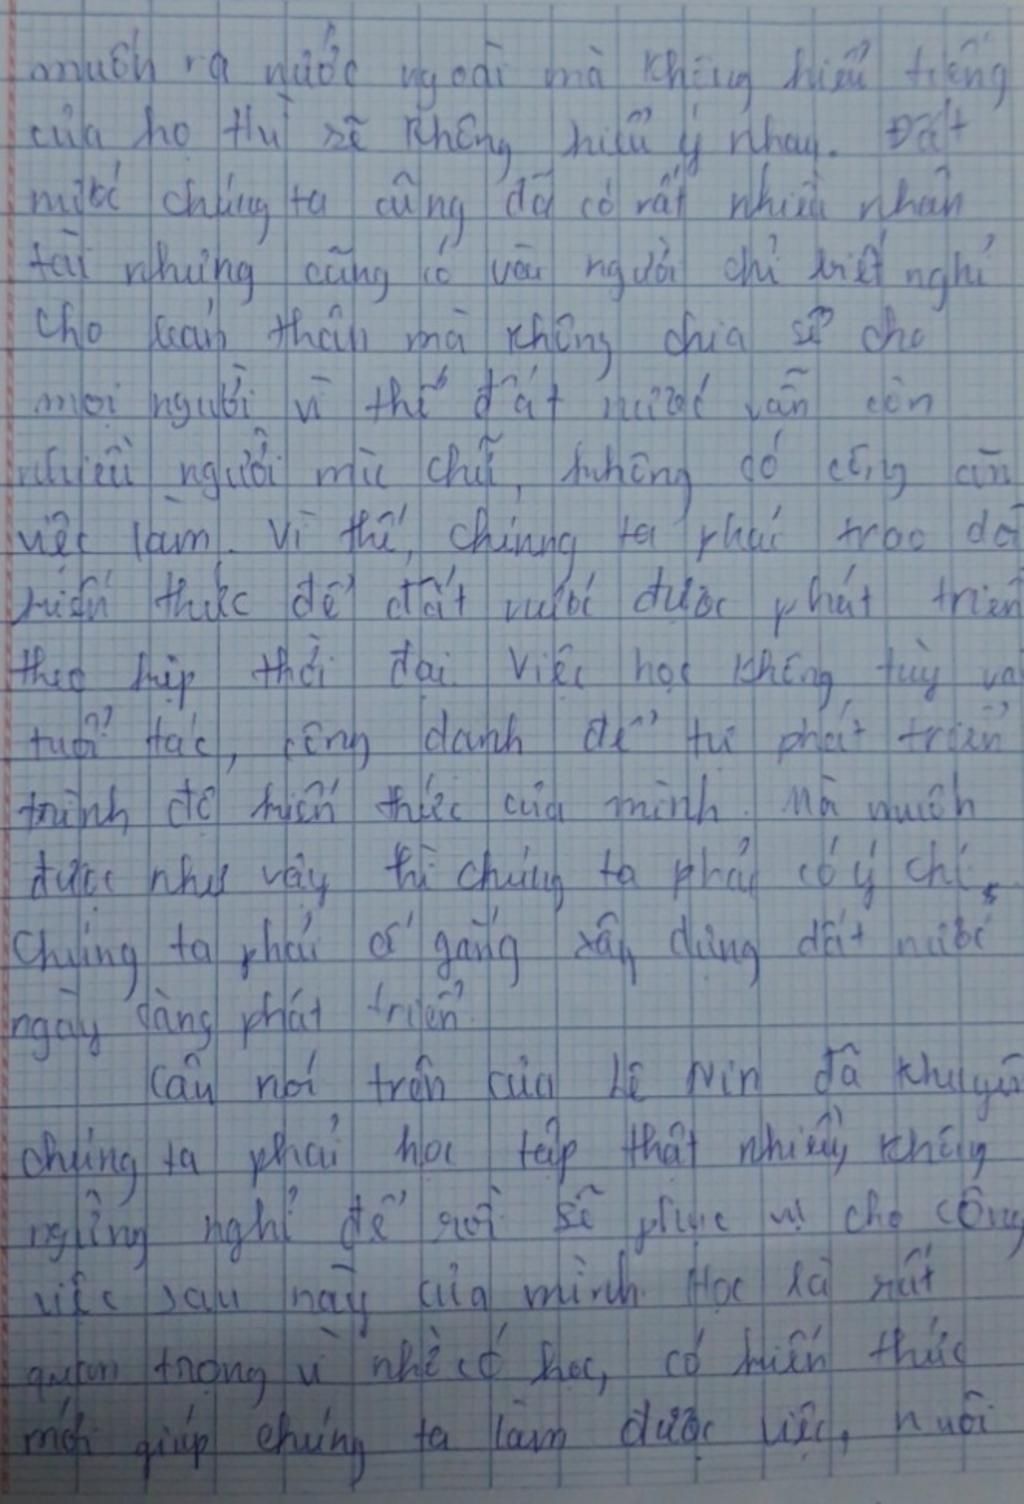 muốn ra nước ngoài mà không hiểu tiếng
của họ thì sẽ không hiểu ý nhau. Đất
nước chúng ta cũng đã có rất nhiều nhân
tài nhưng cũng có vài người chỉ biết nghỉ
cho bản thân mà không chia sẻ cho
mọi người vì thế đất nước vẫn còn
nhiều người mù chữ, không có công ăn
việc làm. Vì thế, chúng ta phải trao dồi
kiến thức để đất nước được phát triển
theo kịp thời đại. Việc học không tùy vào
tuổi tác, công danh để tự phát triển
trình độ kiến thức của mình. Mà muốn
được như vậy thì chúng ta phải có ý chí.
Chúng ta phải cố gắng xây dựng đất nước
ngày càng phát triển.
Câu nói trên của Lê Nin đã khuyên
chúng ta phải học tập thật nhiều, không
ngừng nghỉ để rồi sẽ phục vụ cho công
việc sau này của mình. Học là rất
quan trọng vì nhờ có học, có kiến thức
mới giúp chúng ta làm được việc, nuôi